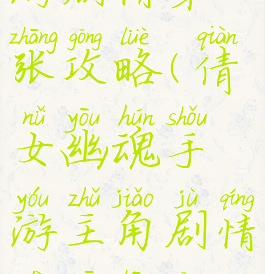 zhāng gōng lüè qiàn
张攻略(倩
nǚ yōu hún shǒu
女幽魂手
yóu zhǔ jiǎo jù qíng
游主角剧情